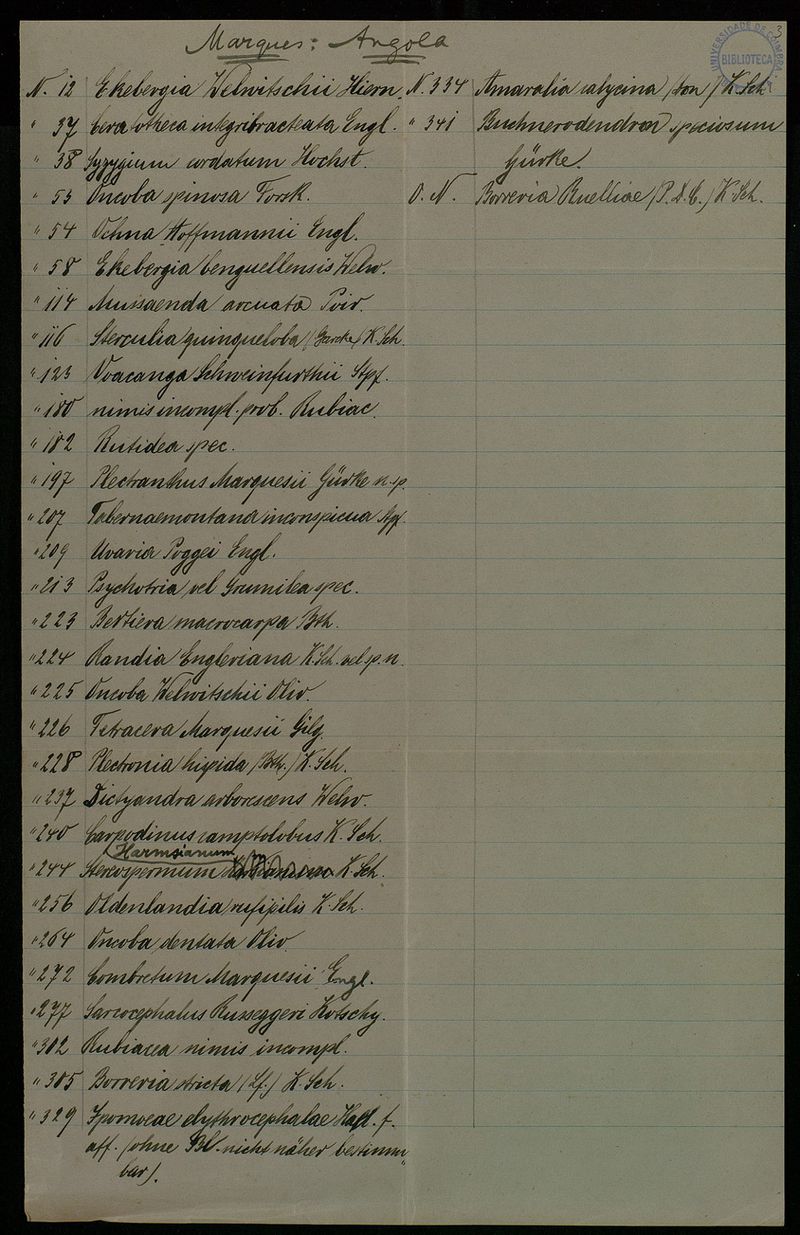 Marques: Angola
3
UNIVERSIDADE DE COIMBRA
BIBLIOTECA
N. 12 Ekebergia Welwitschii Hiern.
" 37 Ceratotheca integribracteata Engl.
" 38 Syzygium cordatum Hochst.
" 53 Oncoba spinosa Forsk.
" 54 Ochna Hoffmannii Engl.
" 58 Ekebergia benguellensis Welw.
" 114 Mussaenda arcuata Poir.
" 116 Sterculia quinqueloba (Garcke) K. Sch.
" 123 Voacanga Schweinfurthii Stpf.
" 180 nimis incompl. prob. Rubiac.
" 182 Rutidea spec.
" 197 Plectranthus Marquesii Gürke n. sp.
" 207 Tabernaemontana inconspicua Stpf.
" 209 Uvaria Poggei Engl.
" 213 Psychotria vel Grumilea spec.
" 223 Bertiera macrocarpa Bth.
" 224 Randia Engleriana K. Sch. vel sp. n.
" 225 Oncoba Welwitschii Oliv.
" 226 Tetracera Marquesii Gilg.
" 228 Plectronia hispida (Bth.) K. Sch.
" 237 Dictyandra arborescens Welw.
" 240 Carpodinus camptolobus K. Sch.
Harmsianum
" 244 Stereospermum K. Sch.
" 256 Oldenlandia rufipilis K. Sch.
" 264 Oncoba dentata Oliv.
" 272 Combretum Marquesii Engl.
" 277 Sarcocephalus Russeggeri Kotschy.
" 302 Rubiacea nimis incompl.
" 305 Borreria stricta (Lf.) K. Sch.
" 329 Ipomoeae elythrocephalae Hall. f.
aff. (ohne Bl. nicht näher bestimm-
bar).
N. 334 Amaralia calycina (Don) K. Sch.
" 341 Buchnerodendron speciosum
Gürke.
O. N. Borreria Ruelliae (P. D. C.) K. Sch.